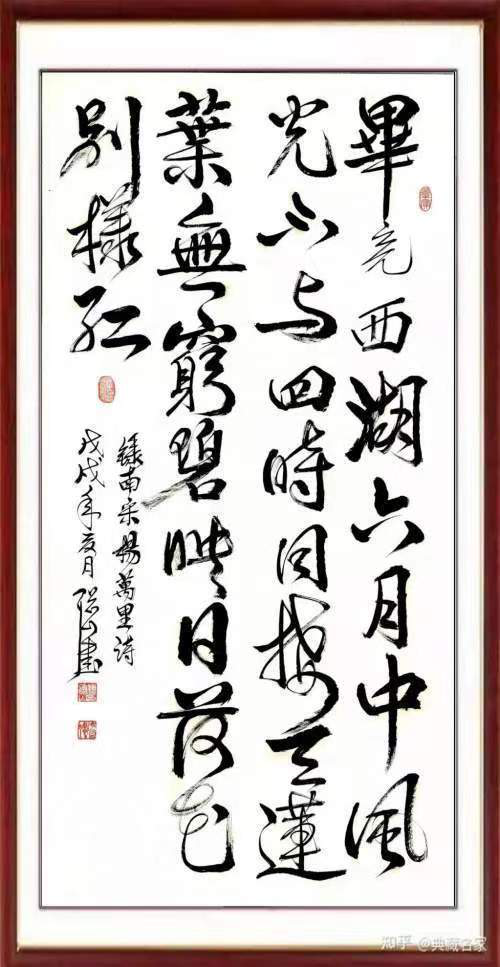 畢竟西湖六月中風
光不与四時同接天蓮
葉無窮碧映日荷花
別樣紅
録南宋楊萬里詩
戊戌年夏月書
知乎 @典藏名家